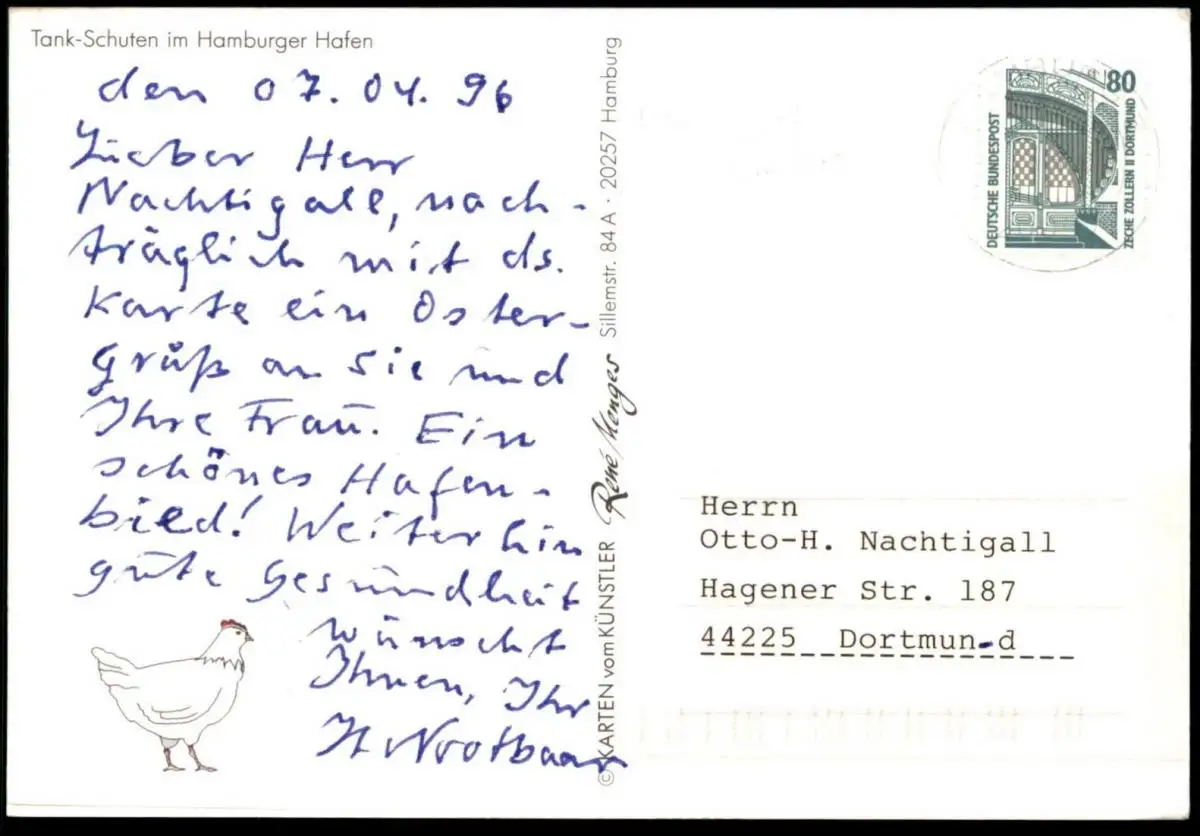 Tank-Schuten im Hamburger Hafen
den 07.04.96
Lieber Herr
Nachtigall, nach-
träglich mit ds.
Karte ein Oster-
gruß an Sie und
Ihre Frau. Ein
schönes Hafen-
bild! Weiterhin
gute Gesundheit
wünscht
Ihnen, Ihr
H Nootbaar
© KARTEN vom KÜNSTLER René Menges Sillemstr. 84 A · 20257 Hamburg
80
DEUTSCHE BUNDESPOST
ZECHE ZOLLERN II DORTMUND
Herrn
Otto-H. Nachtigall
Hagener Str. 187
44225 Dortmun-d